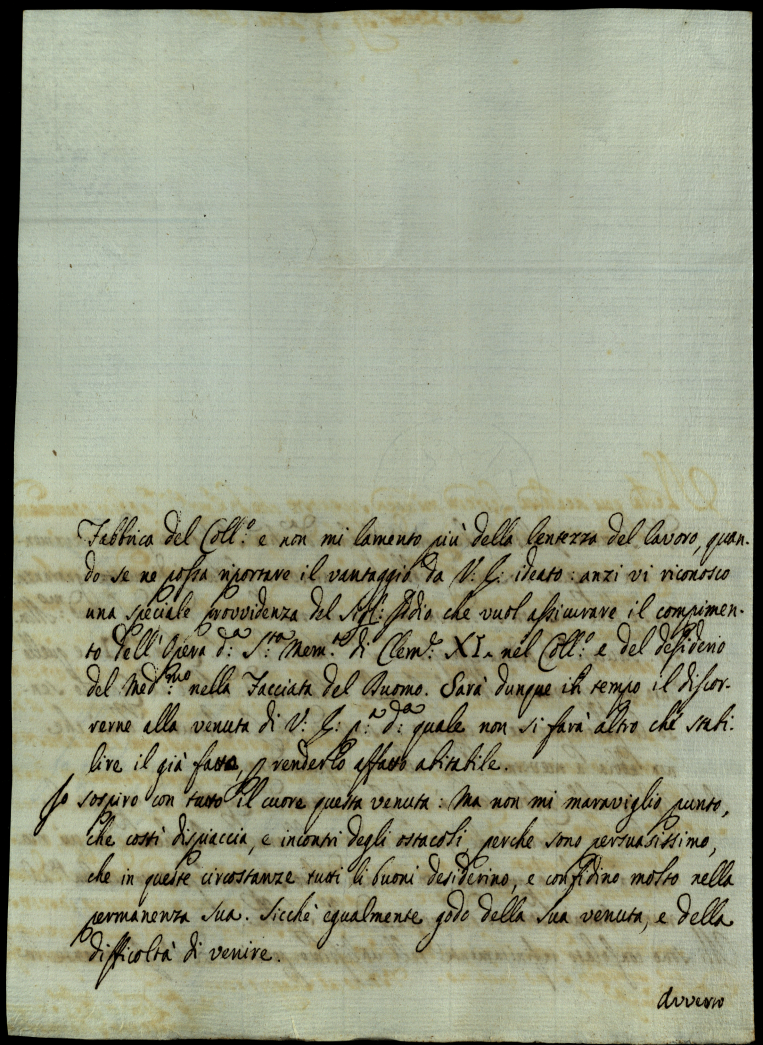 Fabbrica del Coll:º e non mi lamento più della lentezza del lavoro, quan-
do se ne possa riportare il vantaggio da V: S: ideato: anzi vi riconosco
una speciale Provvidenza del Sigl: Iddio che vuol assicurare il compimen-
to dell'Opera d:ª S:ta Mem:ª di Clem:te XI. nel Coll:º e del desiderio
del Med:mo nella Facciata del Duomo. Sarà dunque in tempo il discor-
rerne alla venuta di V: S: p:ª d:ª quale non si farà altro che stabi-
lire il già fatto, p renderlo affatto abitabile.
Io sospiro con tutto il cuore questa venuta: Ma non mi maraviglio punto,
che costì dispiaccia, e incontri degli ostacoli, perche sono persuasissimo,
che in queste circostanze tutti li buoni desiderino, e confidino molto nella
permanenza sua. Sicchè egualmente godo della sua venuta, e della
difficoltà di venire.